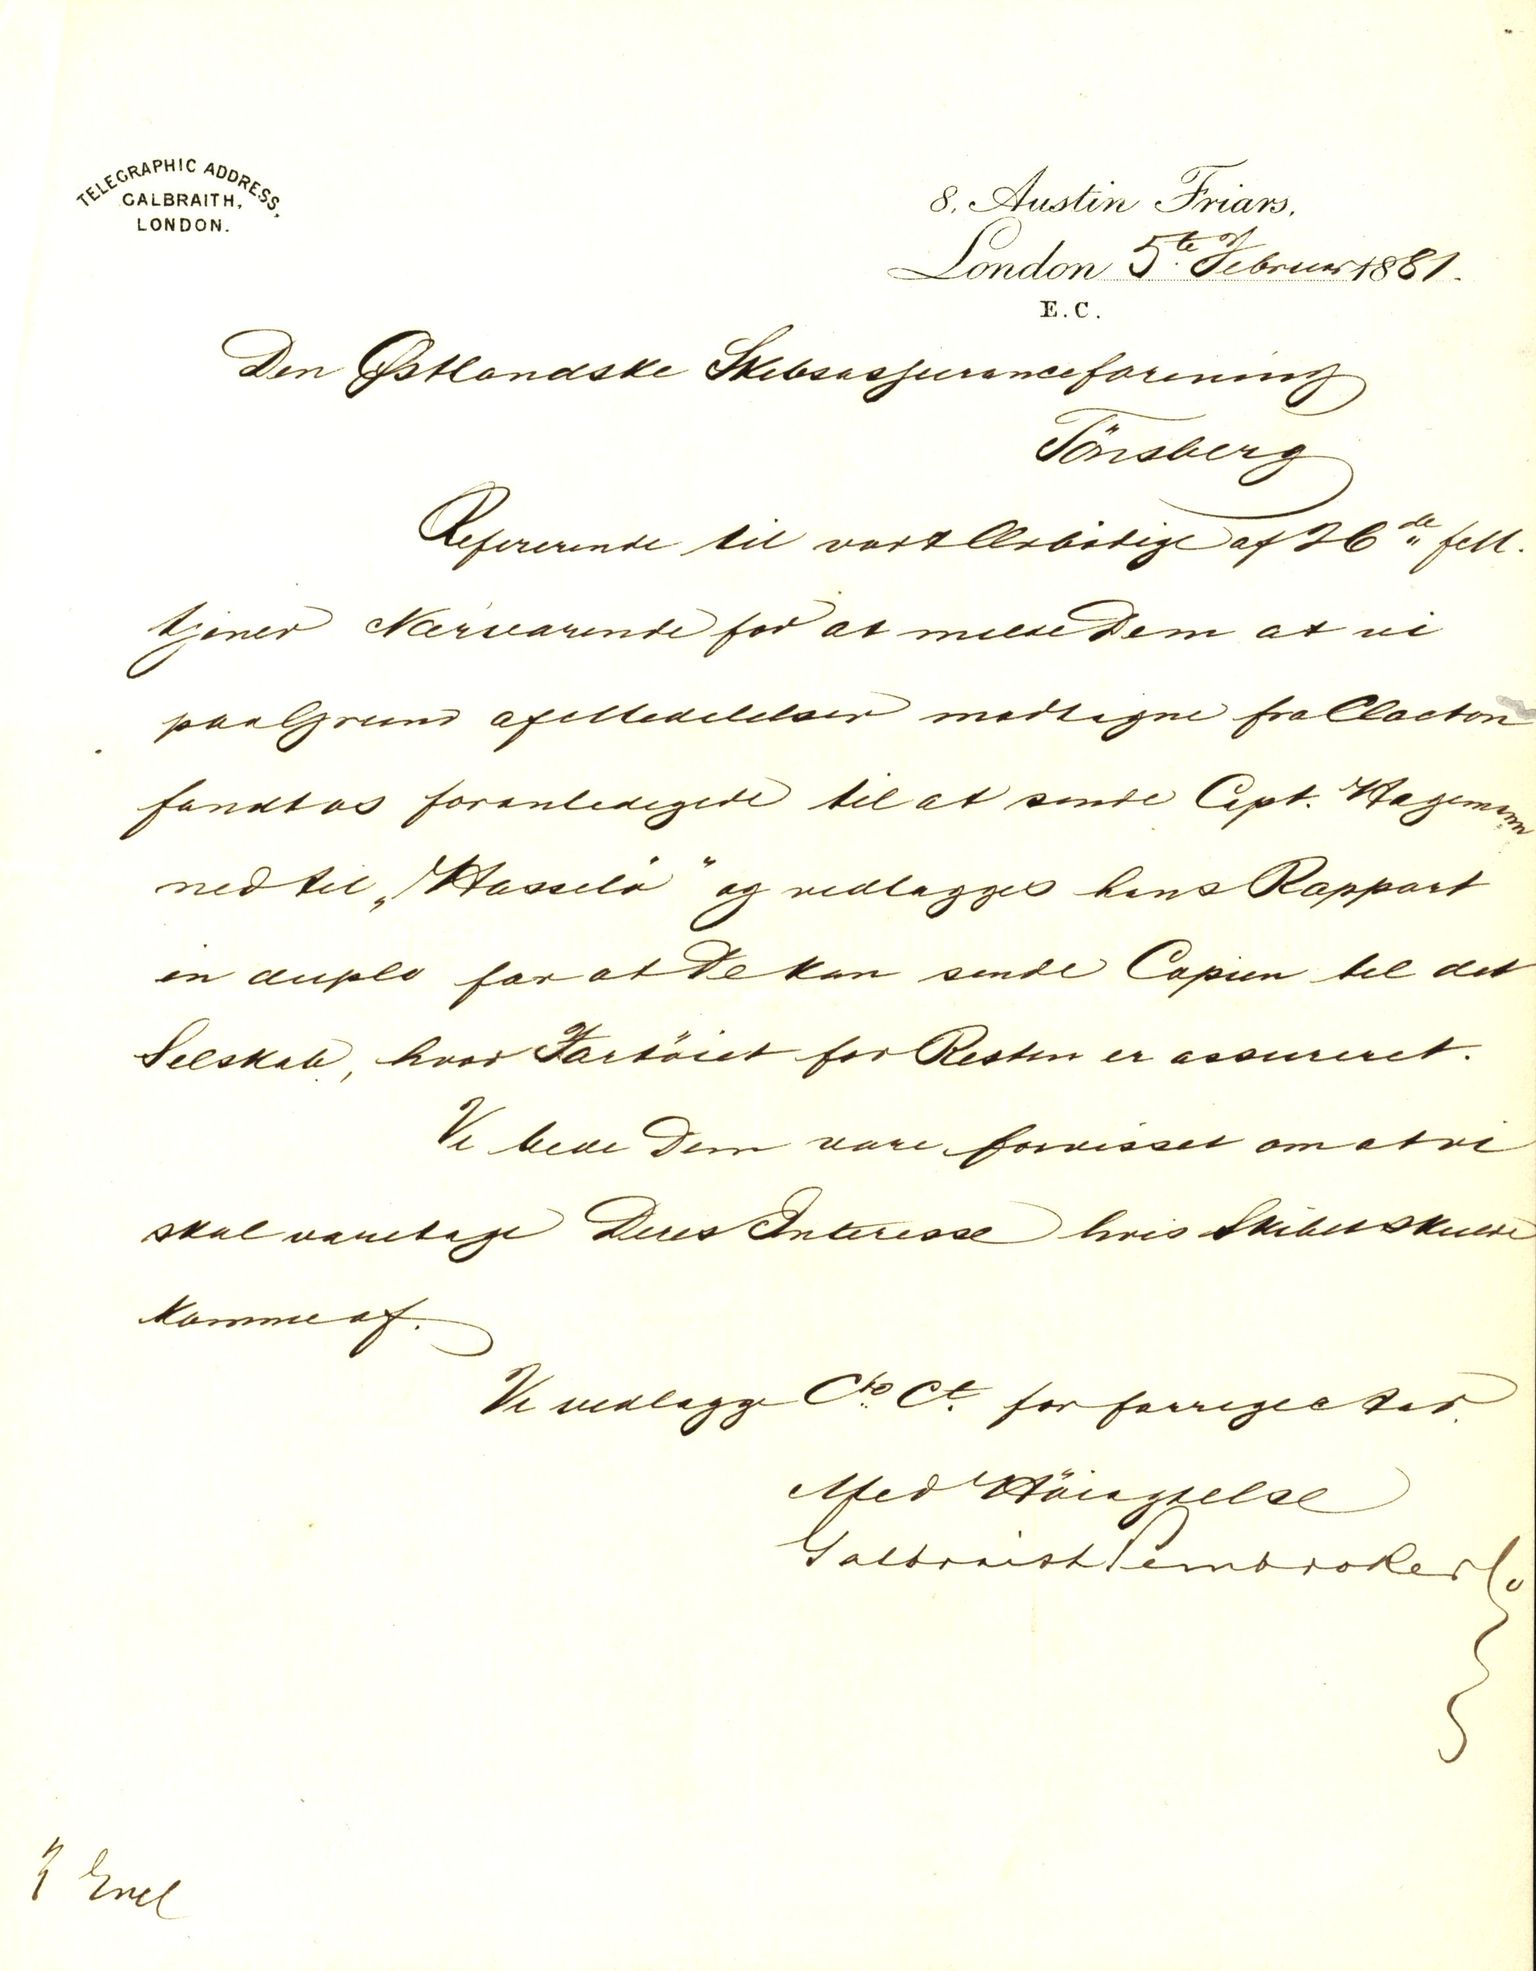 TELEGRAPHIC ADDRESS,
GALBRAITH,
LONDON.
8, Austin Friars,
London 5te Februar 1881.
E.C.
Den Østlandske Skibsassuranceforening
Tönsberg
Refererende til vort Ærbödige af 26de
tjener Nærværende for at melde Dem at vi
paa Grund af Meddelelser modtagne fra Clacton
fandt os foranledigede til at sende Capt. Hagemann
ned til „Hasselö" og vedlægges hans Rapport
in duplo for at De kan sende Copien til det
Selskab, hvor Fartöiet for Resten er assureret.
Vi bede Dem være forvisset om at vi
skal varetage Deres Interesse hvis Skibet skulde
komme af.
Vi vedlægge Cto Ct. for forrige Aar.
Med Höiagtelse
Galbraith Pembroke & Co
Encl